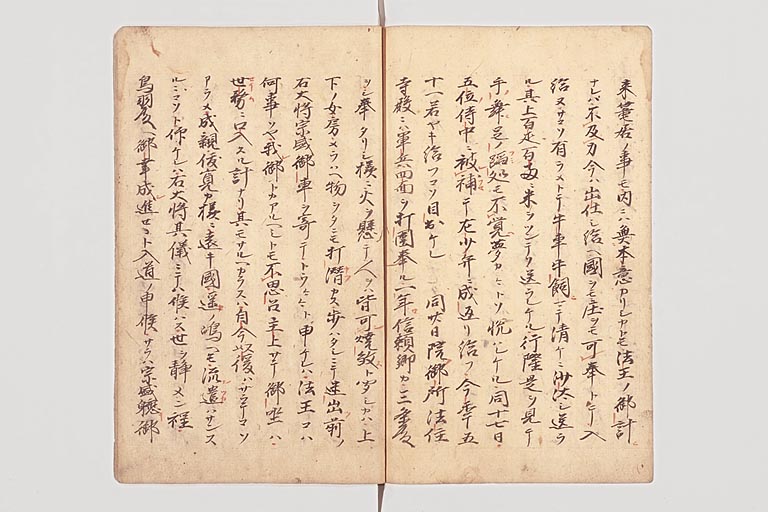 来蟄居ノ事モ内ニハ無本意カリシカトモ法王ノ御計
ナレハ不及力今ハ出仕シ給ヘ國ヲモ庄ヲモ可奉トテ入
給ヌサコソ有ラメトテ牛車牛飼マテ清ケニ沙汰シ送ラ
ル其上百疋百両ニ米ヲツミテソ送ラレケル行隆是ヲ見テ
手ノ舞足ノ踏処モ不覚夢カヒトソ悦ハレケル同十七日
五位侍中ニ被補テ左少弁ニ成返リ給フ今年五
十一若ヤキ給フコソ目出ケレ 同廿日院御所法住
寺殿ニハ軍兵四面ヲ打圍奉ル一年信頼卿カ三条殿
ヲシ奉タリシ様ニ火ヲ懸テ人ヲハ皆可焼殺ト聞シカハ上
下ノ女房メラハヘ物ヲタニモ打潜カス歩ハタシニテ迷出前ノ
右大将宗盛御車ヲ寄テトウトウト申ケレハ法王コハ
何事ソヤ我御トカアルヘシトモ不思召主上サテ御坐ハ
世務ニ口入スル計ナリ其モサルヘカラスハ自今以後ハサラテコソ
アラメ成親俊寛カ様ニ遠キ國遥ノ嶋ヘモ流遣ハサンス
ルニコソト仰ケレハ右大将其儀ニテハ候ハス世ヲ静メン程
鳥羽殿ヘ御幸成進セヨト入道ノ申候サラハ宗盛軈御